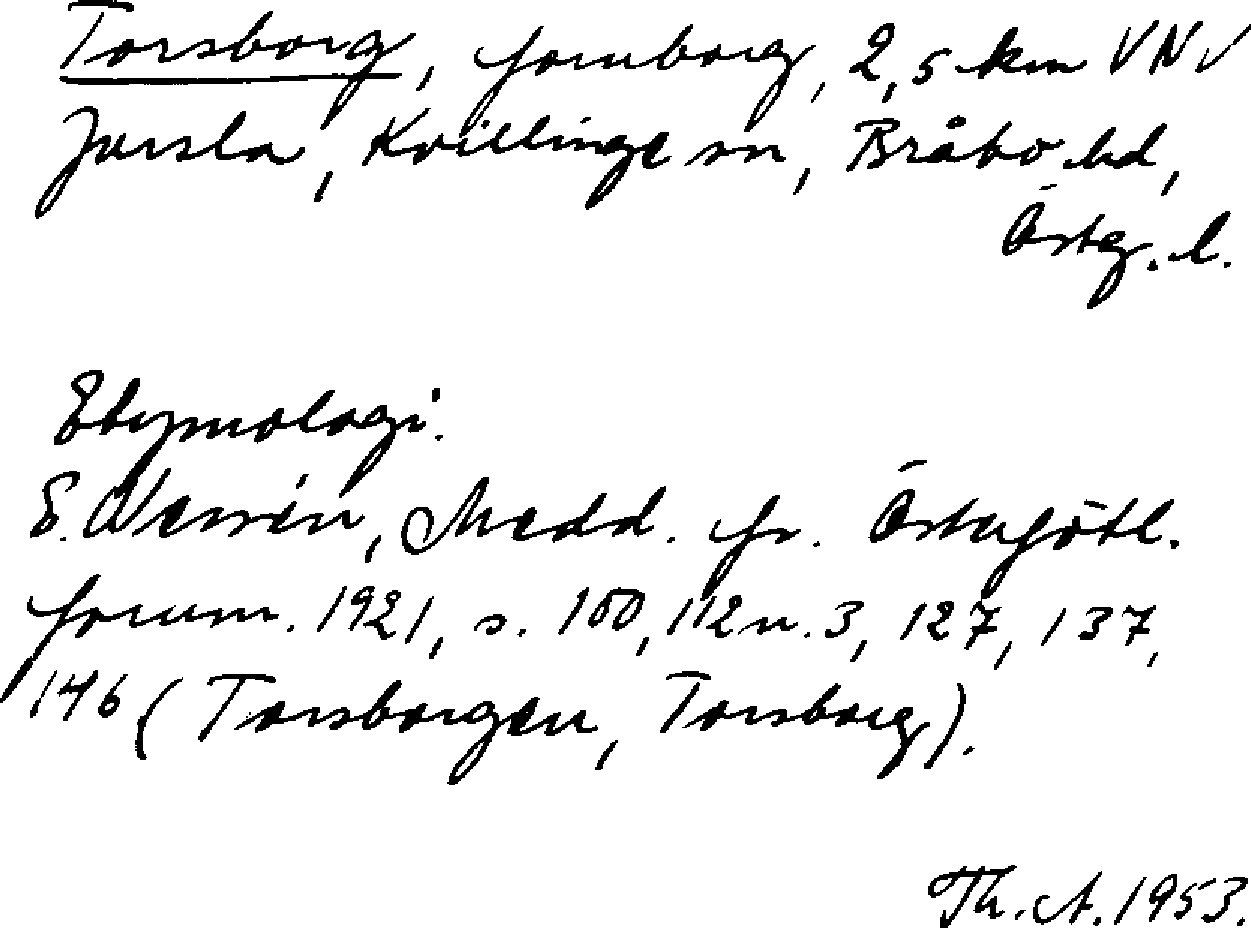 Torsborg, fornborg, 2,5 km VNV
Jursla, Kvillinge sn, Bråbo hd,
Östg. l.
Etymologi.
E. Wessén, Medd. fr. Östergötl.
fornm. 1921, s. 100, 112 n. 3, 127, 137,
146 (Torsborgen, Torsborg).
Th. A. 1953.